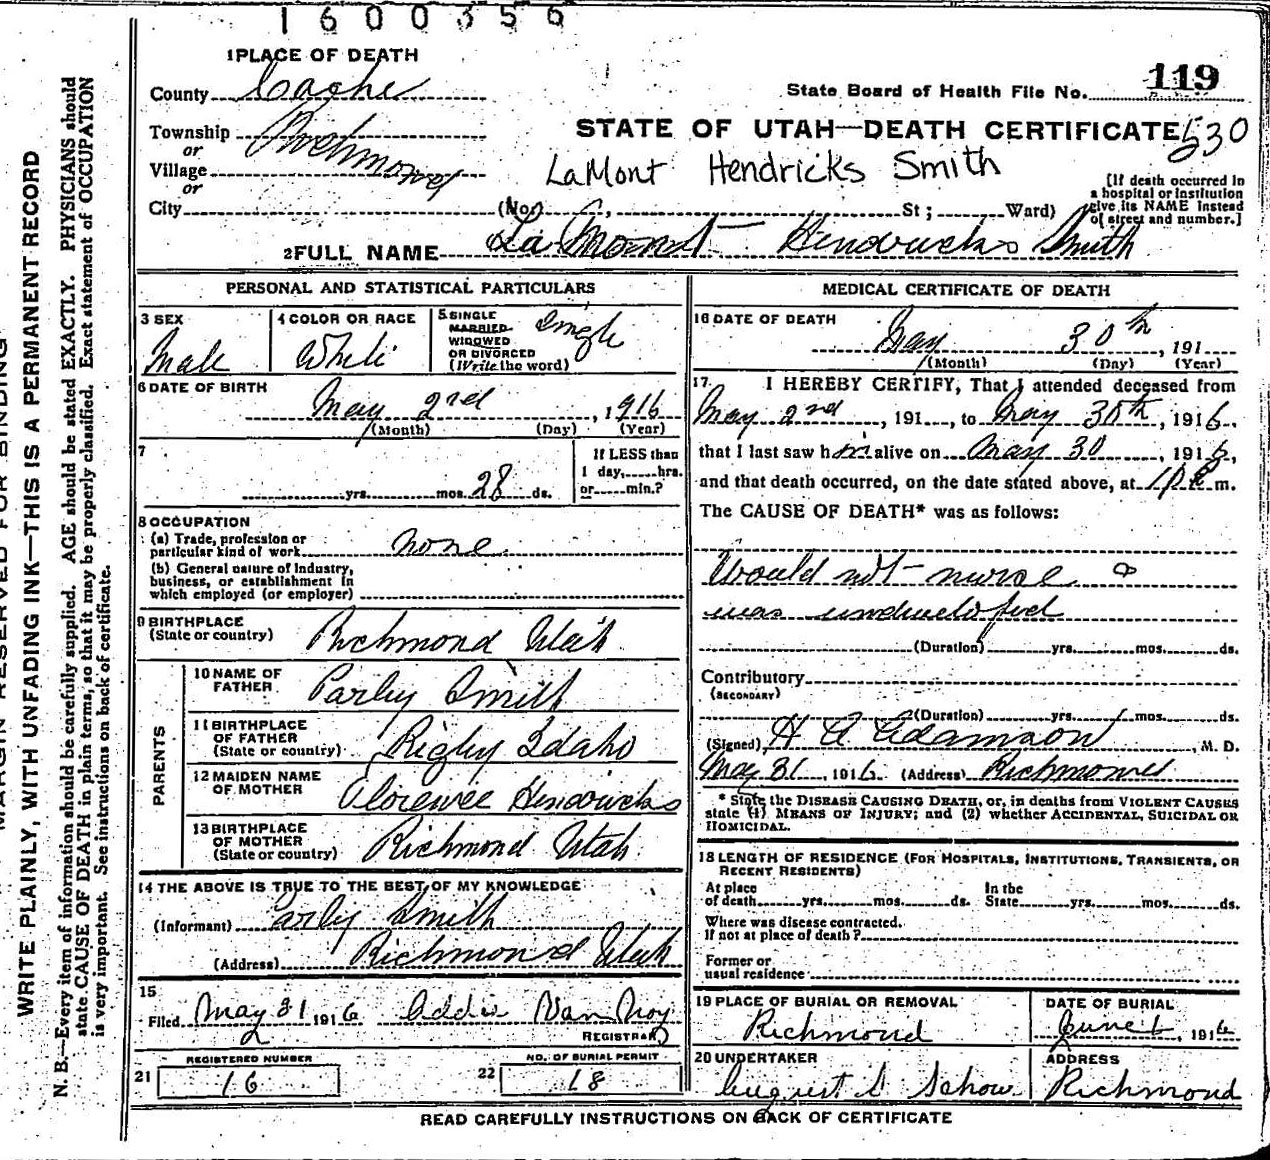 1600356
1 PLACE OF DEATH
119
County Cache
State Board of Health File No.
Township Richmond
or
STATE OF UTAH—DEATH CERTIFICATE 530
Village
or
LaMont Hendricks Smith
[If death occurred in
a hospital or institution
give its NAME instead
of street and number.]
City (No. , St ; Ward)
2 FULL NAME La Mont Hendricks Smith
PERSONAL AND STATISTICAL PARTICULARS
3 SEX
Male
4 COLOR OR RACE
White
5 SINGLE
MARRIED
WIDOWED
OR DIVORCED
(Write the word)
Single
6 DATE OF BIRTH
May 2nd , 1916
(Month) (Day) (Year)
7
yrs. mos. 28 ds.
If LESS than
1 day, hrs.
or min.?
8 OCCUPATION
(a) Trade, profession or
particular kind of work none
(b) General nature of industry,
business, or establishment in
which employed (or employer)
9 BIRTHPLACE
(State or country) Richmond Utah
PARENTS
10 NAME OF
FATHER Parley Smith
11 BIRTHPLACE
OF FATHER
(State or country) Rigby Idaho
12 MAIDEN NAME
OF MOTHER Florence Hendricks
13 BIRTHPLACE
OF MOTHER
(State or country) Richmond Utah
14 THE ABOVE IS TRUE TO THE BEST OF MY KNOWLEDGE
(Informant) Parley Smith
(Address) Richmond Utah
15
Filed May 31 1916 Addie Van Noy
2
REGISTRAR
REGISTERED NUMBER
21 16
NO. OF BURIAL PERMIT
22 18
MEDICAL CERTIFICATE OF DEATH
16 DATE OF DEATH
May 30th , 191
(Month) (Day) (Year)
17. I HEREBY CERTIFY, That I attended deceased from
May 2nd , 191 , to May 30th , 1916,
that I last saw him alive on May 30 , 1916,
and that death occurred, on the date stated above, at 1 P m.
The CAUSE OF DEATH* was as follows:
Would not nurse &
was undeveloped
(Duration) yrs. mos. ds.
Contributory
(SECONDARY)
(Duration) yrs. mos. ds.
(Signed) H A Adamson , M. D.
May 31 , 1916 (Address) Richmond
* State the DISEASE CAUSING DEATH, or, in deaths from VIOLENT CAUSES
state (1) MEANS OF INJURY; and (2) whether ACCIDENTAL, SUICIDAL OR
HOMICIDAL.
18 LENGTH OF RESIDENCE (FOR HOSPITALS, INSTITUTIONS, TRANSIENTS, OR
RECENT RESIDENTS)
At place
of death yrs. mos. ds.
In the
State yrs. mos. ds.
Where was disease contracted.
If not at place of death?
Former or
usual residence
19 PLACE OF BURIAL OR REMOVAL
Richmond
DATE OF BURIAL
June 1, 1916
20 UNDERTAKER
August S Schow
ADDRESS
Richmond
READ CAREFULLY INSTRUCTIONS ON BACK OF CERTIFICATE
MARGIN RESERVED FOR BINDING
WRITE PLAINLY, WITH UNFADING INK—THIS IS A PERMANENT RECORD
N. B.—Every item of information should be carefully supplied. AGE should be stated EXACTLY. PHYSICIANS should
state CAUSE OF DEATH in plain terms, so that it may be properly classified. Exact statement of OCCUPATION
is very important. See instructions on back of certificate.